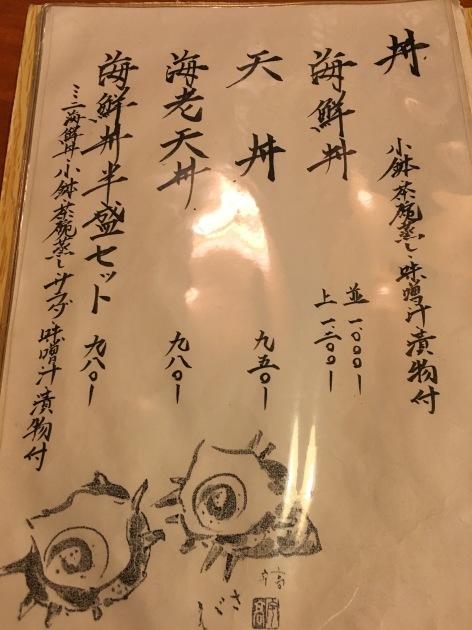 丼
小鉢・茶碗蒸し・味噌汁漬物付
海鮮丼
並 一、〇〇〇ー
上 一、三〇〇ー
天丼 九五〇ー
海老天丼 九八〇ー
海鮮丼半盛セット 九八〇ー
ミニ海鮮丼・小鉢・茶碗蒸し・サラダ・味噌汁漬物付
さざえ